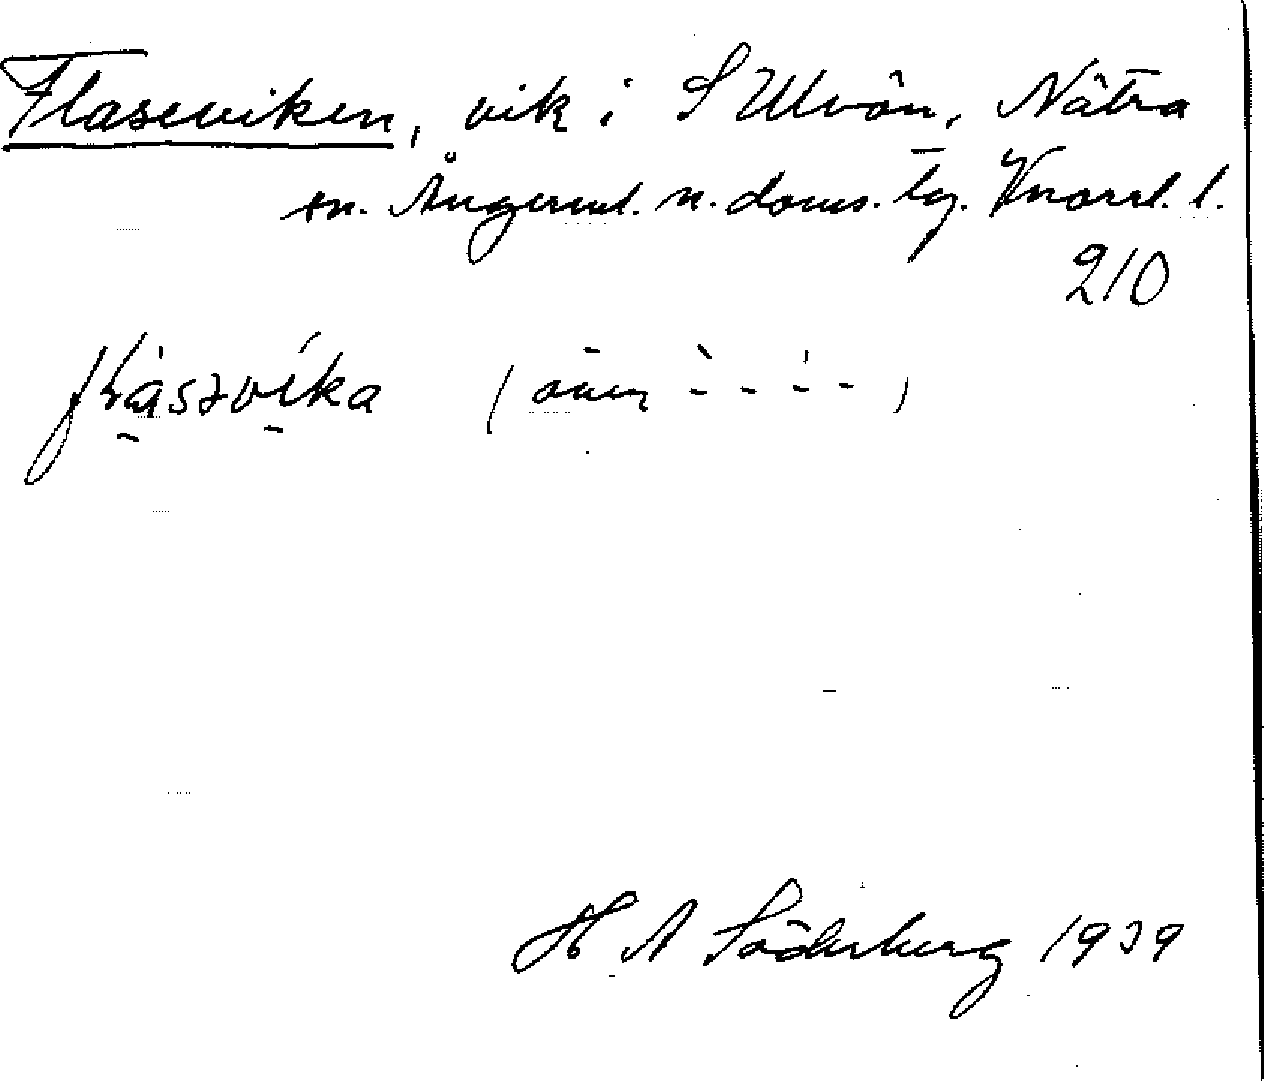 Flaseviken, vik i S Ulvön, Nätra
sn. Ångerml. n. doms. lg. Vnorrl. l.
210
(även
H A Söderberg 1939